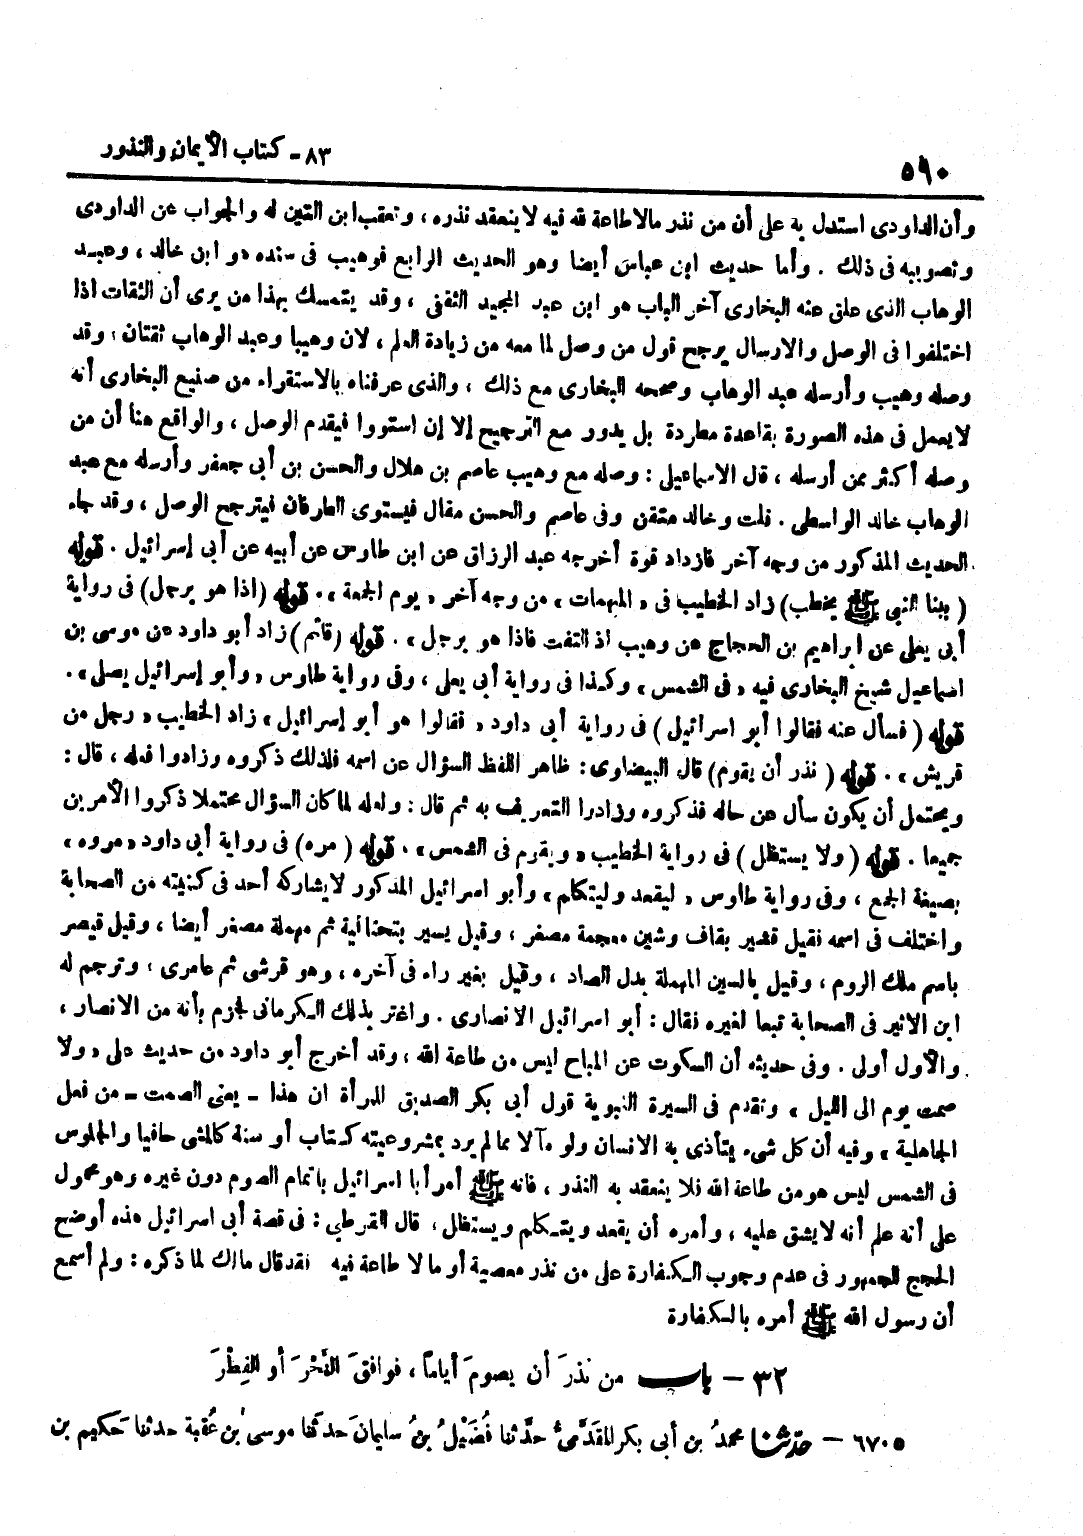 ٨٣ - كتاب الأيمان والنذور
٥٩٠
وأن الداودى استدل به على أن من نذر مالا طاعة لله فيه لا ينعقد نذره ، وتعقب ابن التين له والجواب عن الداودى
وتصويبه فى ذلك . وأما حديث ابن عباس أيضا وهو الحديث الرابع فوهيب فى سنده هو ابن خالد ، وعبد
الوهاب الذى علق عنه البخارى آخر الباب هو ابن عبد المجيد الثقفى ، وقد يتمسك بهذا من يرى أن الثقات اذا
اختلفوا فى الوصل والارسال يرجح قول من وصل لما معه من زيادة العلم ، لان وهيبا وعبد الوهاب ثقتان ، وقد
وصله وهيب وأرسله عبد الوهاب وصححه البخارى مع ذلك ، والذى عرفناه بالاستقراء من صنيع البخارى أنه
لا يعمل فى هذه الصورة بقاعدة مطردة بل يدور مع الترجيح إلا إن استووا فيقدم الوصل ، والواقع هنا أن من
وصله أكثر ممن أرسله ، قال الاسماعيلى : وصله مع وهيب عاصم بن هلال والحسن بن أبى جعفر وأرسله مع عبد
الوهاب خالد الواسطى . قلت وخالد متقن وفى عاصم والحسن مقال فيستوى الطرفان فيترجح الوصل ، وقد جاء
الحديث المذكور من وجه آخر فازداد قوة أخرجه عبد الرزاق عن ابن طاوس عن أبيه عن أبى إسرائيل . قوله
( بينا النبى ﷺ يخطب ) زاد الخطيب فى « المبهمات » من وجه آخر « يوم الجمعة » . قوله ( اذا هو برجل ) فى رواية
أبى يعلى عن ابراهيم بن الحجاج عن وهيب اذ التفت فاذا هو برجل » . قوله ( قائم ) زاد أبو داود عن موسى بن
اسماعيل شيخ البخارى فيه « فى الشمس » وكذا فى رواية أبى يعلى ، وفى رواية طاوس « وأبو إسرائيل يصلى » .
قوله ( فسأل عنه فقالوا أبو اسرائيل ) فى رواية أبى داود « فقالوا هو أبو إسرائيل » زاد الخطيب « رجل من
قريش » . قوله ( نذر أن يقوم ) قال البيضاوى : ظاهر اللفظ السؤال عن اسمه فلذلك ذكروه وزادوا فعله ، قال :
ويحتمل أن يكون سأل عن حاله فذكروه وزادوا التعريف به ثم قال : ولعله لما كان السؤال محتملا ذكروا الأمرين
جميعا . قوله ( ولا يستظل ) فى رواية الخطيب « ويقوم فى الشمس » . قوله ( مره ) فى رواية أبى داود « مروه »
بصيغة الجمع ، وفى رواية طاوس « ليقعد وليتكلم » وأبو اسرائيل المذكور لا يشاركه أحد فى كنيته من الصحابة
واختلف فى اسمه فقيل قشير بقاف وشين معجمة مصغر ، وقيل يسير بتحتانية ثم مهملة مصغر أيضا ، وقيل قيصر
باسم ملك الروم ، وقيل بالسين المهملة بدل الصاد ، وقيل بغير راء فى آخره ، وهو قرشى ثم عامرى ، وترجم له
ابن الاثير فى الصحابة تبعا لغيره فقال : أبو اسرائيل الانصارى . واغتر بذلك الكرمانى فجزم بأنه من الانصار ،
والأول أولى . وفى حديثه أن السكوت عن المباح ليس من طاعة الله ، وقد أخرج أبو داود من حديث على « ولا
صمت يوم الى الليل » وتقدم فى السيرة النبوية قول أبى بكر الصديق للمرأة ان هذا - يعنى الصمت - من فعل
الجاهلية » وفيه أن كل شىء يتأذى به الانسان ولو مآلا مما لم يرد بمشروعيته كتاب أو سنة كالمشى حافيا والجلوس
فى الشمس ليس هو من طاعة الله فلا ينعقد به النذر ، فانه ﷺ أمر أبا اسرائيل باتمام الصوم دون غيره وهو محمول
على أنه علم أنه لا يشق عليه ، وأمره أن يقعد ويتكلم ويستظل ، قال القرطبى : فى قصة أبى اسرائيل هذه أوضح
الحجج للجمهور فى عدم وجوب الكفارة على من نذر معصية أو مالا طاعة فيه فقد قال مالك لما ذكره : ولم أسمع
أن رسول الله ﷺ أمره بالكفارة
٣٢ - باب من نذرَ أن يصومَ أياماً ، فوافقَ النَّحرَ أو الفِطْرَ
٦٧٠٥ - حدثنا محمدُ بن أبى بكر المقدَّمىُّ حدَّثنا فُضَيْلُ بنُ سليمانَ حدثنا موسى بن عُقبة حدثنا حَكيم بن